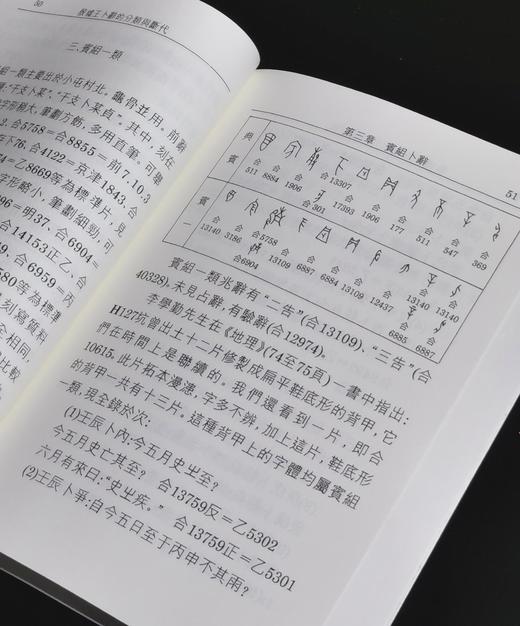 50 殷墟王卜辭的分類與斷代
三、賓組一類
組一類主要出於小屯村北。龜骨並用。前辭
“干支卜某”、“干支卜某貞”。其中,刻在
字形稍大,筆劃方,多用直筆。可舉
2、合5758=合8855=前7.10.3
下76、合4122=京津1843、合
4=乙8669等爲標準片,見
字形略小,筆劃細勁,可
96=明37、合6904=
合14153正乙、合
69、合6959=丙
580等爲標準
刻寫質料
全相同
比較
第三章 賓組卜辭 51
典賓
合511 合8884 合1906 合13307 合301 合17393 合1906 合177 合511 合547 合369
賓一
合13140 合3186 合5758 合6904 合13109 合6887 合6884 合13109 合12437 合13140 合6885 合13140 合6887
賓組一類兆辭有“一告”(合13109)、“三告”(合
40328),未見占辭,有驗辭(合12974)。
李學勤先生在《地理》(74至75頁)一書中指出:
H127坑曾出土十二片修製成扁平鞋底形的背甲,它
們在時間上是聯續的。我們還看到一片,即合
10615。此片拓本漫漶,字多不辨,加上這片,鞋底形
的背甲一共有十三片。這種背甲上的字體均屬賓組
一類,現全錄於次:
(1)壬辰卜內:今五月史㞢至?
今五月史亡其至? 合13759反=乙5302
六月有來曰:“史㞢疾。” 合13759正=乙5301
(2)壬辰卜爭:自今五日至于丙申不其雨?